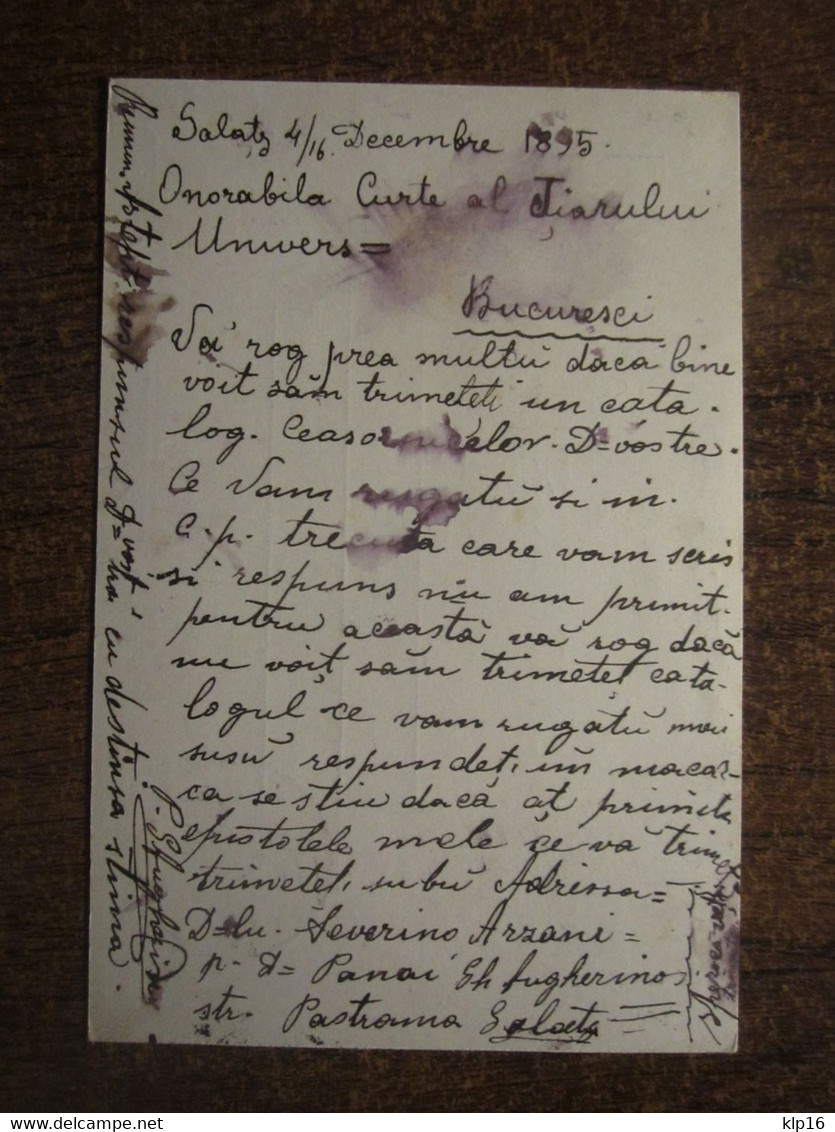 Galatz 4/16 Decembre 1895.
Onorabila Curte al Țiarului
Univers=
Bucuresci
Vă rog prea multŭ dacă bine
voit săm trimeteți un cata-
log. Ceasornicelor. D=vostre.
Ce Vam rugatŭ si in.
C.p. trecuta care vam scris
si respuns nu am primit.
pentru aceastà vă rog dacă
nu voiț săm trimeteț cata-
logul ce vam rugatŭ mai
susŭ respundeț, im macar
ca se stiu dacă aț primitŭ
epistolele mele ce vă trimet
trimeteț, subŭ Adressa=
D=lu. Severino Arzani=
p. D= Panai Gh Sugherino
str. Pastrama Galatz
Remun. astept. respunsul D=vost
cu destinsa stima.
P. Sugherino
klp16